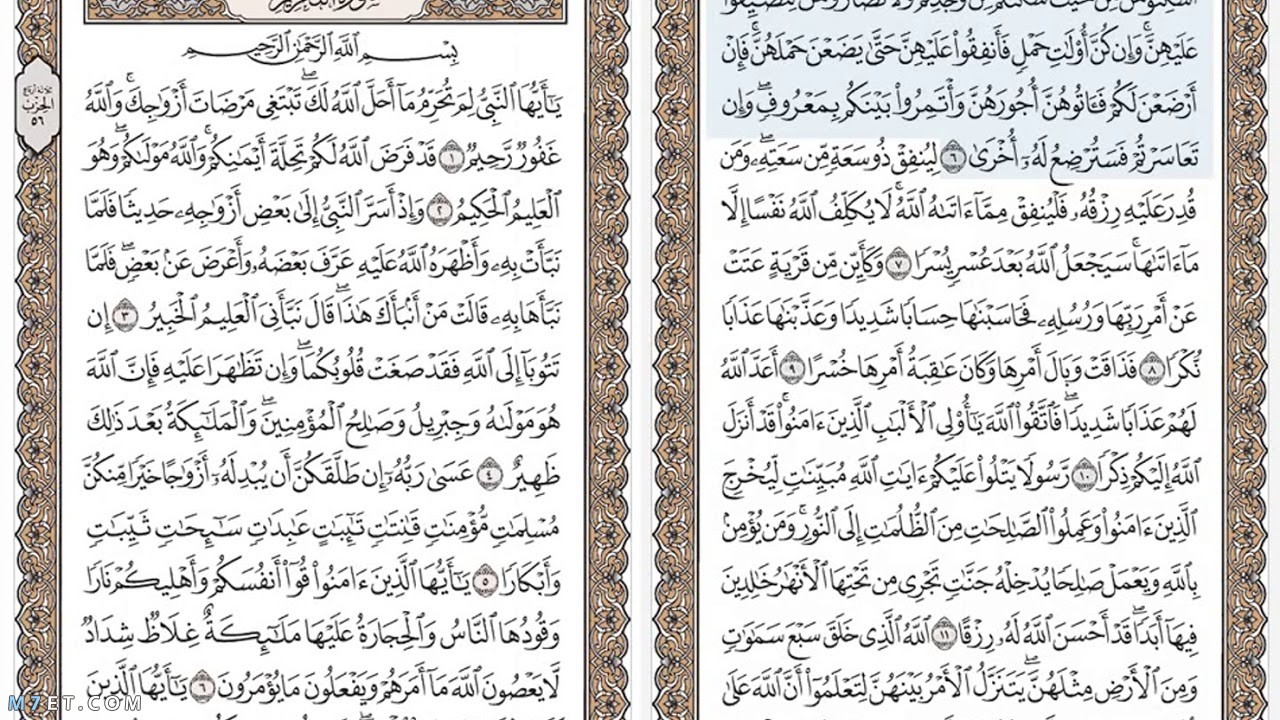 عَلَيْهِنَّ ۚ وَإِن كُنَّ أُو۟لَٰتِ حَمْلٍ فَأَنفِقُوا۟ عَلَيْهِنَّ حَتَّىٰ يَضَعْنَ حَمْلَهُنَّ ۚ فَإِنْ
أَرْضَعْنَ لَكُمْ فَـَٔاتُوهُنَّ أُجُورَهُنَّ وَأْتَمِرُوا۟ بَيْنَكُم بِمَعْرُوفٍ ۖ وَإِن
تَعَاسَرْتُمْ فَسَتُرْضِعُ لَهُۥٓ أُخْرَىٰ ٦ لِيُنفِقْ ذُو سَعَةٍ مِّن سَعَتِهِۦ ۖ وَمَن
قُدِرَ عَلَيْهِ رِزْقُهُۥ فَلْيُنفِقْ مِمَّآ ءَاتَىٰهُ ٱللَّهُ ۚ لَا يُكَلِّفُ ٱللَّهُ نَفْسًا إِلَّا
مَآ ءَاتَىٰهَا ۚ سَيَجْعَلُ ٱللَّهُ بَعْدَ عُسْرٍ يُسْرًا ٧ وَكَأَيِّن مِّن قَرْيَةٍ عَتَتْ
عَنْ أَمْرِ رَبِّهَا وَرُسُلِهِۦ فَحَاسَبْنَٰهَا حِسَابًا شَدِيدًا وَعَذَّبْنَٰهَا عَذَابًا
نُّكْرًا ٨ فَذَاقَتْ وَبَالَ أَمْرِهَا وَكَانَ عَٰقِبَةُ أَمْرِهَا خُسْرًا ٩ أَعَدَّ ٱللَّهُ
لَهُمْ عَذَابًا شَدِيدًا ۖ فَٱتَّقُوا۟ ٱللَّهَ يَٰٓأُو۟لِى ٱلْأَلْبَٰبِ ٱلَّذِينَ ءَامَنُوا۟ ۚ قَدْ أَنزَلَ
ٱللَّهُ إِلَيْكُمْ ذِكْرًا ١٠ رَّسُولًا يَتْلُوا۟ عَلَيْكُمْ ءَايَٰتِ ٱللَّهِ مُبَيِّنَٰتٍ لِّيُخْرِجَ
ٱلَّذِينَ ءَامَنُوا۟ وَعَمِلُوا۟ ٱلصَّٰلِحَٰتِ مِنَ ٱلظُّلُمَٰتِ إِلَى ٱلنُّورِ ۚ وَمَن يُؤْمِنۢ
بِٱللَّهِ وَيَعْمَلْ صَٰلِحًا يُدْخِلْهُ جَنَّٰتٍ تَجْرِى مِن تَحْتِهَا ٱلْأَنْهَٰرُ خَٰلِدِينَ
فِيهَآ أَبَدًا ۖ قَدْ أَحْسَنَ ٱللَّهُ لَهُۥ رِزْقًا ١١ ٱللَّهُ ٱلَّذِى خَلَقَ سَبْعَ سَمَٰوَٰتٍ
وَمِنَ ٱلْأَرْضِ مِثْلَهُنَّ ۖ يَتَنَزَّلُ ٱلْأَمْرُ بَيْنَهُنَّ لِتَعْلَمُوٓا۟ أَنَّ ٱللَّهَ عَلَىٰ
سُورَةُ التَّحْرِيمِ
بِسْمِ ٱللَّهِ ٱلرَّحْمَٰنِ ٱلرَّحِيمِ
يَٰٓأَيُّهَا ٱلنَّبِىُّ لِمَ تُحَرِّمُ مَآ أَحَلَّ ٱللَّهُ لَكَ ۖ تَبْتَغِى مَرْضَاتَ أَزْوَٰجِكَ ۚ وَٱللَّهُ
غَفُورٌ رَّحِيمٌ ١ قَدْ فَرَضَ ٱللَّهُ لَكُمْ تَحِلَّةَ أَيْمَٰنِكُمْ ۚ وَٱللَّهُ مَوْلَىٰكُمْ ۖ وَهُوَ
ٱلْعَلِيمُ ٱلْحَكِيمُ ٢ وَإِذْ أَسَرَّ ٱلنَّبِىُّ إِلَىٰ بَعْضِ أَزْوَٰجِهِۦ حَدِيثًا فَلَمَّا
نَبَّأَتْ بِهِۦ وَأَظْهَرَهُ ٱللَّهُ عَلَيْهِ عَرَّفَ بَعْضَهُۥ وَأَعْرَضَ عَنۢ بَعْضٍ ۖ فَلَمَّا
نَبَّأَهَا بِهِۦ قَالَتْ مَنْ أَنۢبَأَكَ هَٰذَا ۖ قَالَ نَبَّأَنِىَ ٱلْعَلِيمُ ٱلْخَبِيرُ ٣ إِن
تَتُوبَآ إِلَى ٱللَّهِ فَقَدْ صَغَتْ قُلُوبُكُمَا ۖ وَإِن تَظَٰهَرَا عَلَيْهِ فَإِنَّ ٱللَّهَ
هُوَ مَوْلَىٰهُ وَجِبْرِيلُ وَصَٰلِحُ ٱلْمُؤْمِنِينَ ۖ وَٱلْمَلَٰٓئِكَةُ بَعْدَ ذَٰلِكَ
ظَهِيرٌ ٤ عَسَىٰ رَبُّهُۥٓ إِن طَلَّقَكُنَّ أَن يُبْدِلَهُۥٓ أَزْوَٰجًا خَيْرًا مِّنكُنَّ
مُسْلِمَٰتٍ مُّؤْمِنَٰتٍ قَٰنِتَٰتٍ تَٰٓئِبَٰتٍ عَٰبِدَٰتٍ سَٰٓئِحَٰتٍ ثَيِّبَٰتٍ
وَأَبْكَارًا ٥ يَٰٓأَيُّهَا ٱلَّذِينَ ءَامَنُوا۟ قُوٓا۟ أَنفُسَكُمْ وَأَهْلِيكُمْ نَارًا
وَقُودُهَا ٱلنَّاسُ وَٱلْحِجَارَةُ عَلَيْهَا مَلَٰٓئِكَةٌ غِلَاظٌ شِدَادٌ
لَّا يَعْصُونَ ٱللَّهَ مَآ أَمَرَهُمْ وَيَفْعَلُونَ مَا يُؤْمَرُونَ ٦ يَٰٓأَيُّهَا ٱلَّذِينَ
ثلاثة أرباع
الحزب
٥٦
M7ET.COM